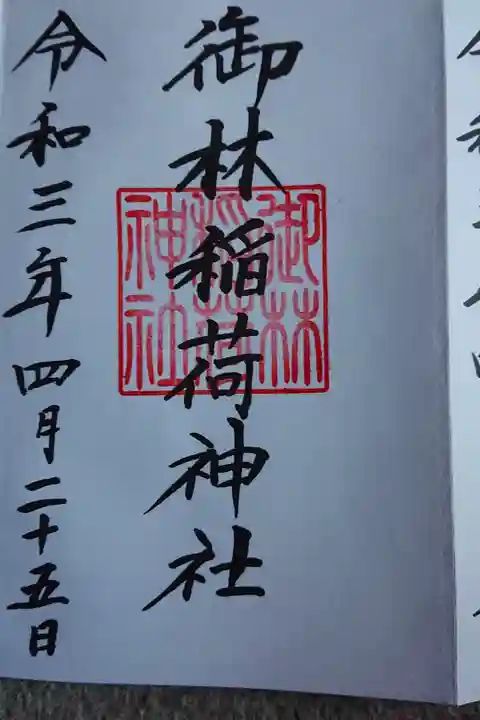 御林稲荷神社
御林
稲荷
神社
令和三年四月二十五日